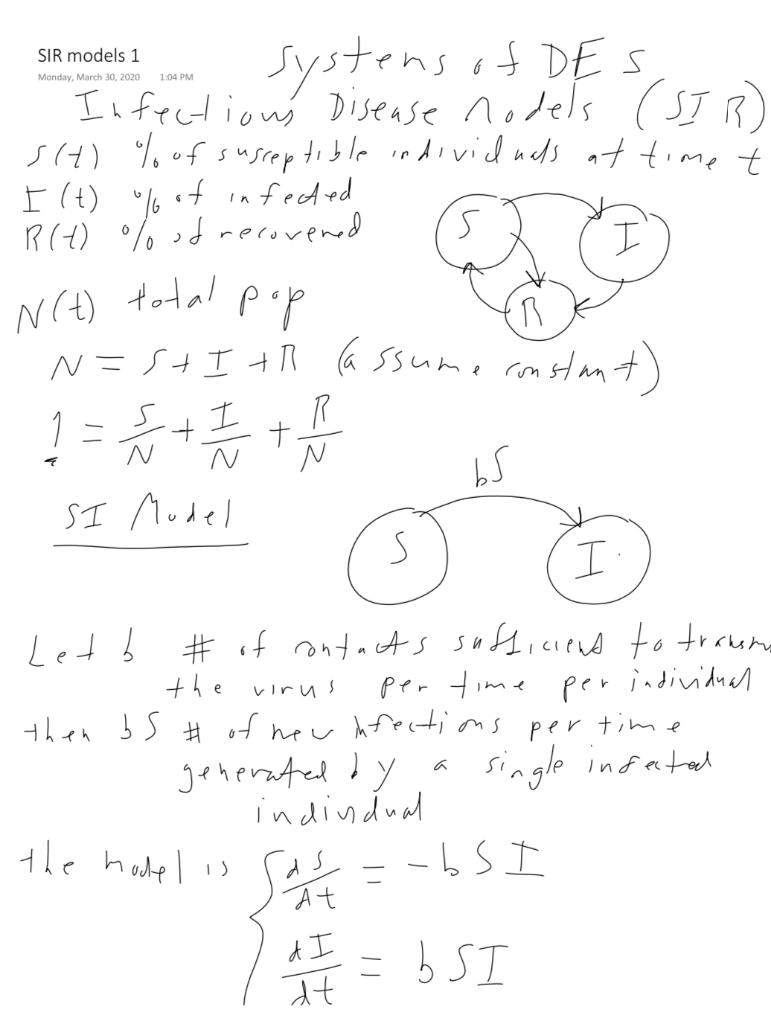 SIR models 1
Monday, March 30, 2020 1:04 PM
Systems of DES
Infectious Disease Models (SIR)
S(t) % of susceptible individuals at time t
I(t) % of infected
R(t) % of recovered
S
I
R
N(t) total pop
N = S + I + R (assume constant)
1 = S/N + I/N + R/N
SI Model
bS
S
I
Let b # of contacts sufficient to transm
the virus per time per individual
then bS # of new infections per time
generated by a single infected
individual
the model is { dS/dt = -bSI
dI/dt = bSI